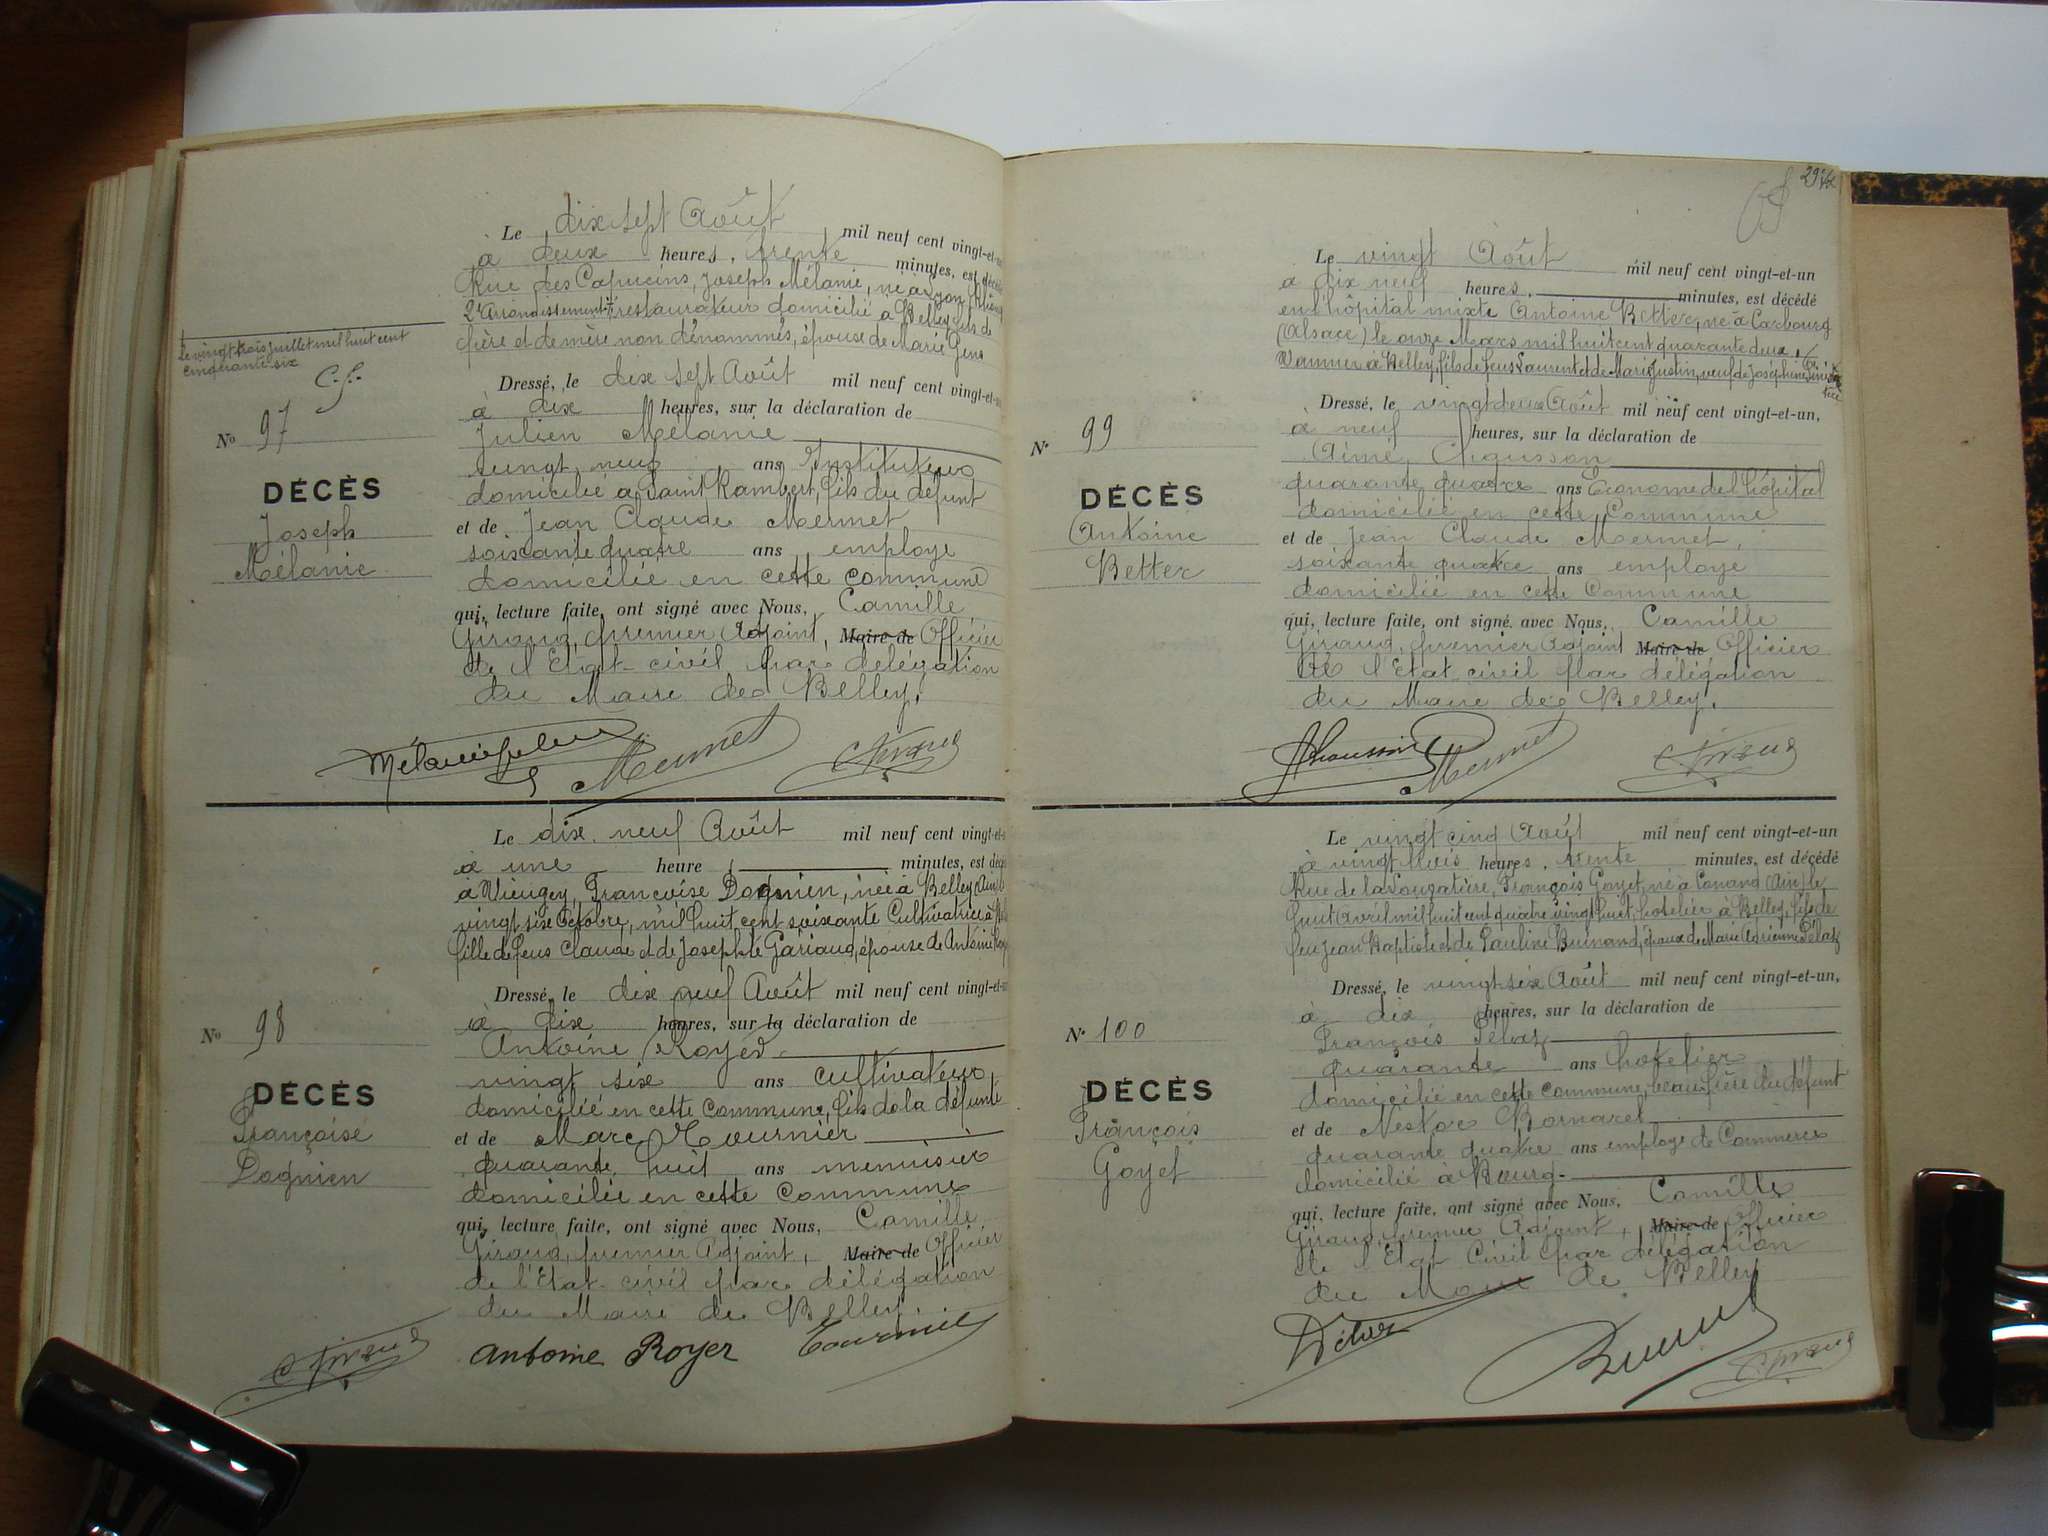 Le dix sept Août mil neuf cent vingt-et-un
à deux heures, trente minutes, est décédé
Rue des Capucins, Joseph Mélanie, né à Lyon (Rhône)
2e Arrondissement restaurateur domicilié à Belley fils de
père et de mère non dénommés, époux de Marie Gens
le vingt trois juillet mil huit cent
cinquante six
C. G.
Dressé, le dix sept Août mil neuf cent vingt-et-un
à dix heures, sur la déclaration de
Julien Mélanie
vingt neuf ans Instituteur
domicilié à Saint Rambert, fils du défunt
et de Jean Claude Mermet
soixante quatre ans employé
domicilié en cette commune
qui, lecture faite, ont signé avec Nous, Camille
Giraud, premier Adjoint, Maire de Officier
de l'Etat-civil par délégation
du Maire de Belley.
No 97
DÉCÈS
Joseph
Mélanie
Mélanie Julien Mermet C. Giraud
Le dix neuf Août mil neuf cent vingt-et-u
à une heure minutes, est décé
à Vieugey, Françoise Dognien, née à Belley (Ain) le
vingt six Octobre, mil huit cent soixante Cultivatrice à
fille de feus Claude et de Josephte Gariaud, épouse de Antoine Roy
Dressé, le dix neuf Août mil neuf cent vingt-et-u
à dix heures, sur la déclaration de
Antoine Royer
vingt six ans cultivateur,
domicilié en cette commune, fils de la défunte
et de Marc Tournier
quarante huit ans menuisier
domicilié en cette commune
qui, lecture faite, ont signé avec Nous, Camille
Giraud, premier Adjoint, Maire de Officier
de l'Etat-civil par délégation
du Maire de Belley.
No 98
DÉCÈS
Françoise
Dognien
C. Giraud Antoine Royer Tournier
29
Le vingt Août mil neuf cent vingt-et-un
à dix neuf heures, minutes, est décédé
en l'hôpital mixte Antoine Better, né à Carbourg
(Alsace) le onze Mars mil huit cent quarante deux,
Vannier à Belley, fils de feus Laurent et de Marie Justin, veuf de Josephine
Dressé, le vingt deux Août mil neuf cent vingt-et-un,
à neuf heures, sur la déclaration de
Aimé Chausson
quarante quatre ans Econome de l'hôpital
domicilié en cette Commune
et de Jean Claude Mermet,
soixante quatre ans employé
domicilié en cette Commune
qui, lecture faite, ont signé avec Nous, Camille
Giraud, premier Adjoint Maire de Officier
de l'Etat-civil par délégation
du Maire de Belley.
No 99
DÉCÈS
Antoine
Better
Chausson Mermet C. Giraud
Le vingt cinq Août mil neuf cent vingt-et-un
à vingt trois heures, trente minutes, est décédé
Rue de la Louvatière, François Goyet, né à Conand (Ain) le
huit Avril mil huit cent quatre vingt huit, hôtelier à Belley, fils de
feu Jean Baptiste et de Pauline Buinand, époux de Marie Adrienne Pélaz
Dressé, le vingt six Août mil neuf cent vingt-et-un,
à dix heures, sur la déclaration de
François Pélaz
quarante ans hotelier
domicilié en cette commune, beau-frère du défunt
et de Nestor Bornarel
quarante quatre ans employé de Commerce
domicilié à Bourg.
qui, lecture faite, ont signé avec Nous, Camille
Giraud, premier Adjoint, Maire de Officier
de l'Etat Civil par délégation
du Maire de Belley
No 100
DÉCÈS
François
Goyet
Pélaz C. Giraud